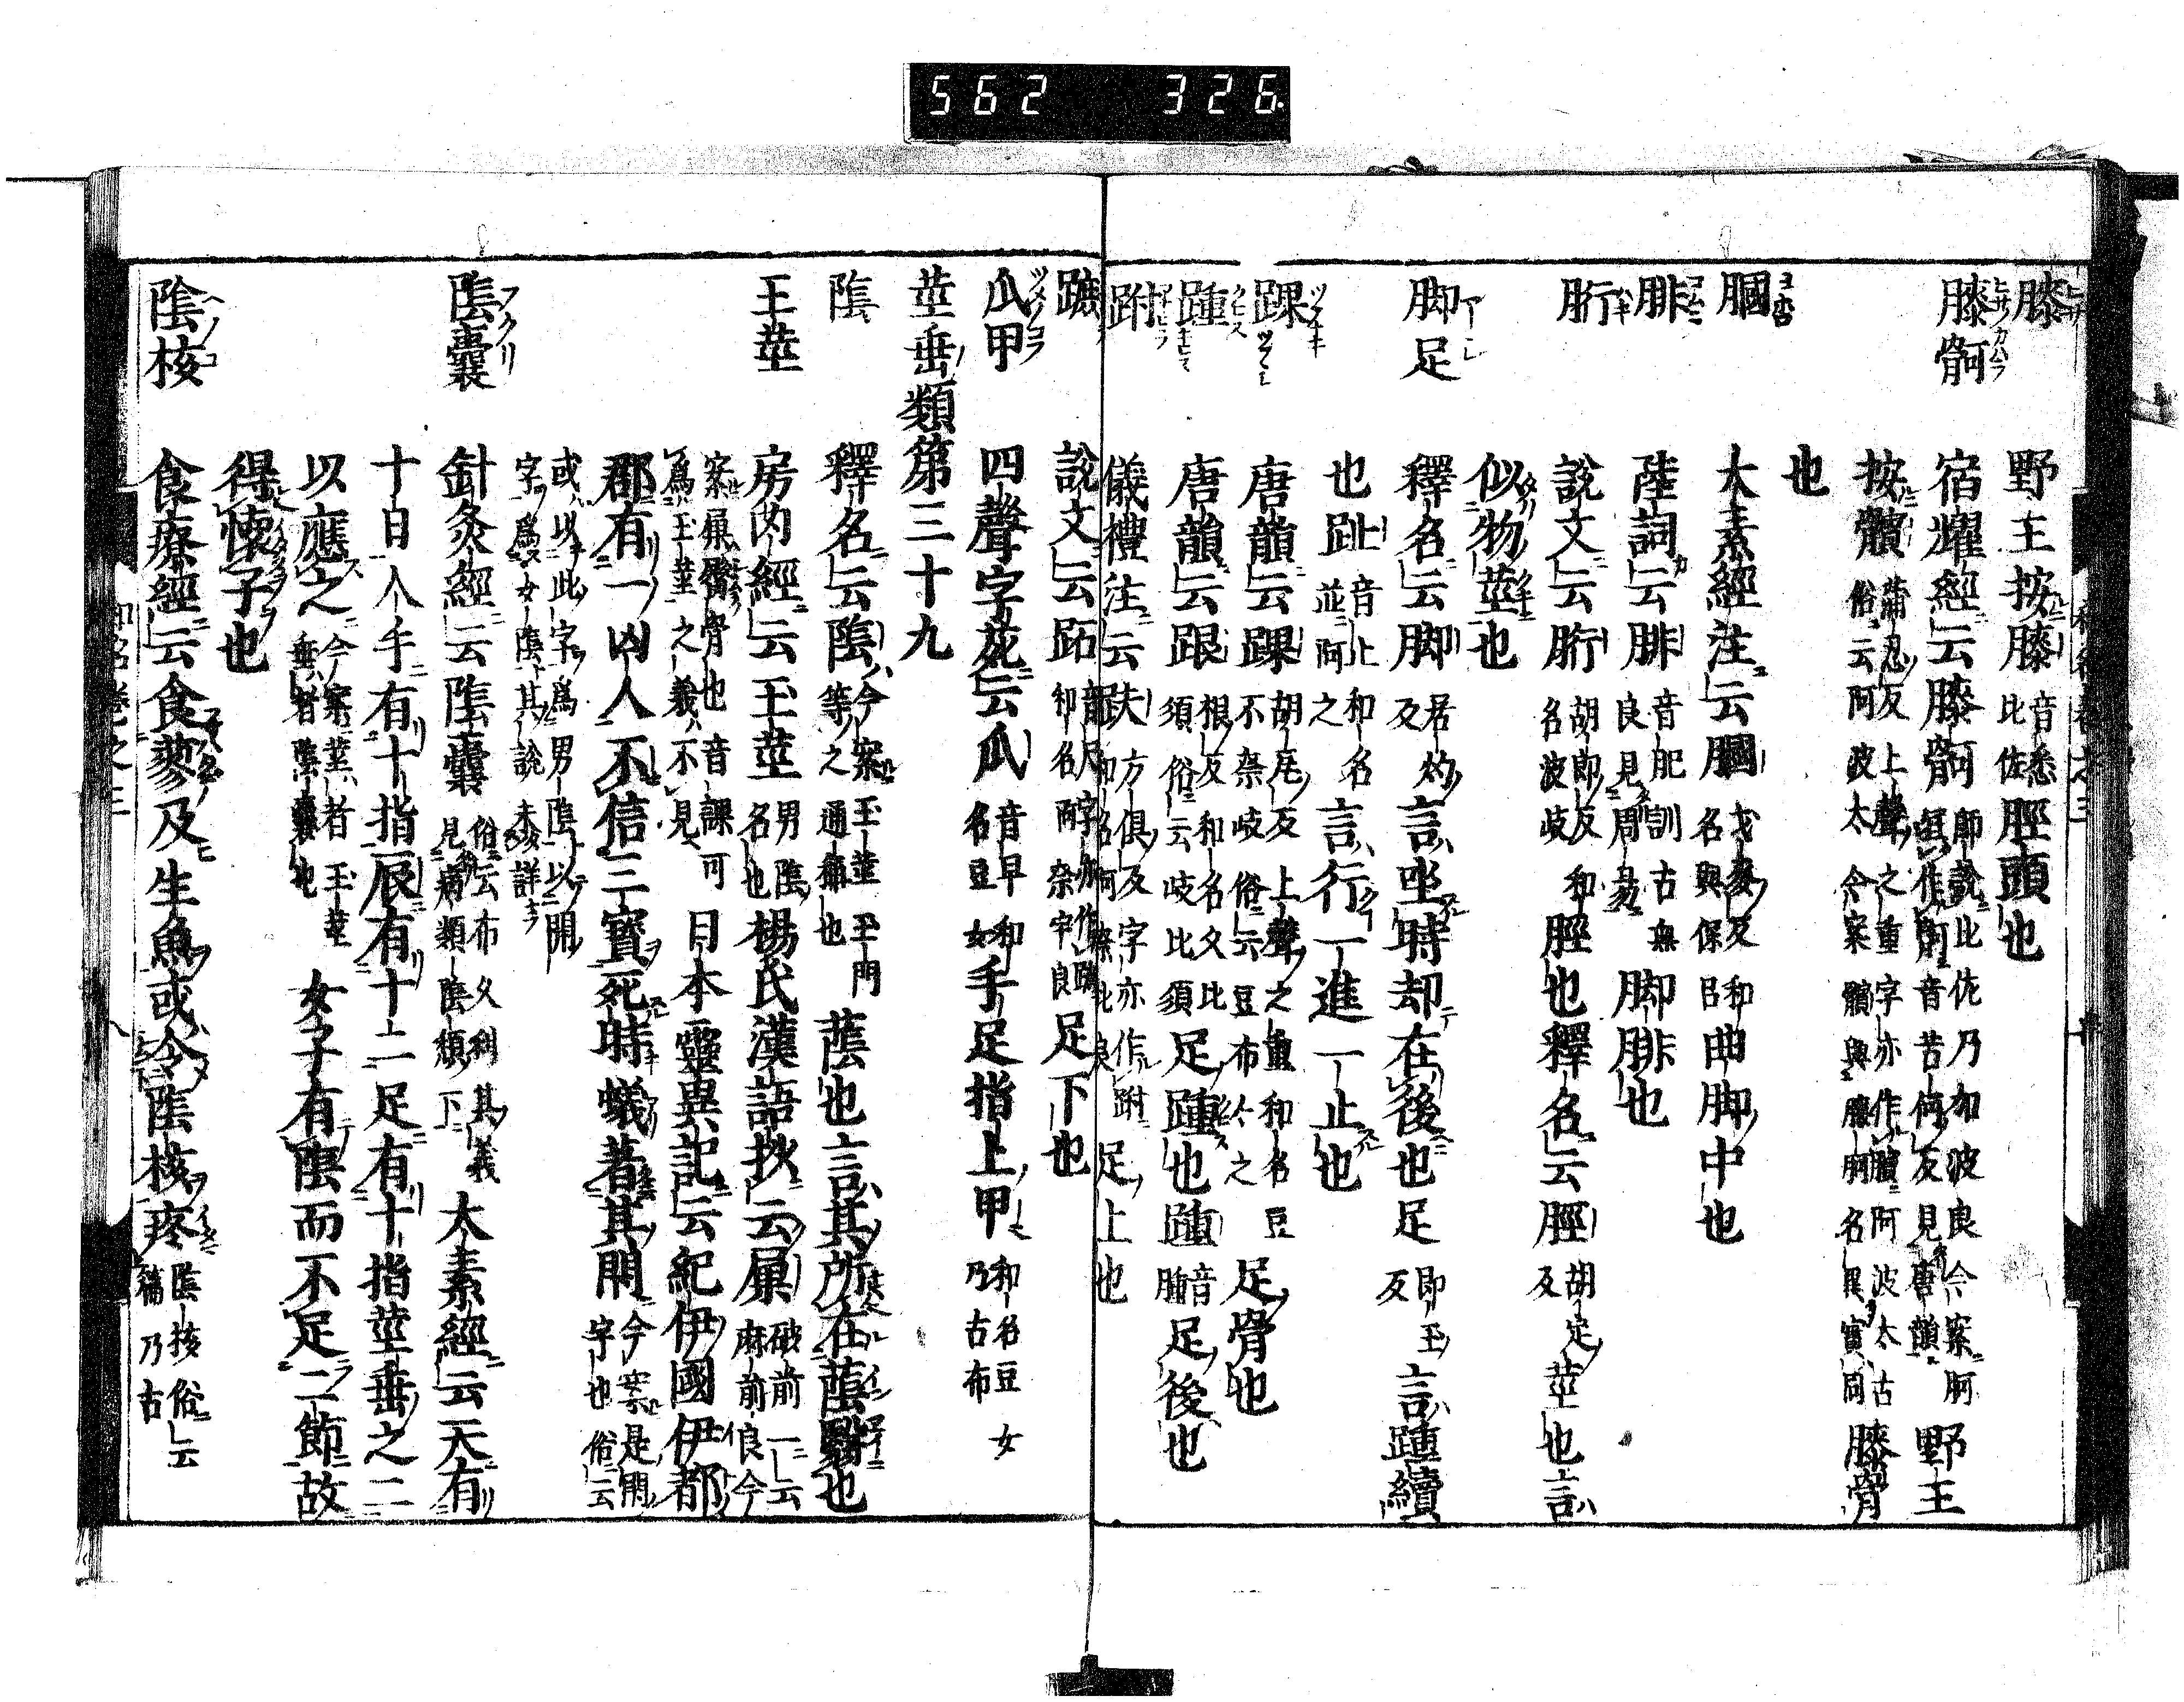 562 326
膝 野王按膝 音悉 比佐 脛頭也
膝䯊 宿耀經云膝䯊 師說比佐乃加波良今案䯊 音苦何反見唐韻 野王
按髕 蒲忍反上聲之重字亦作臏阿波太古 俗云阿波太今案髕與膝䯊名異實同 膝骨
也
膕 大素經注云膕 和名與保呂 曲脚中也
腓 陸詞云腓 音肥訓古無良見周易 脚腓也
䯒 說文云䯒 胡郎反和名波岐 脛也釋名云脛 胡定反 莖也言
似物莖也
脚足 釋名云脚 居灼反 言坐時却在後也足 即玉反 言踵續
也趾 音止和名 並阿之 言行一進一止也
踝 唐韻云踝 胡瓦反上聲之重和名豆不奈岐俗云豆布々之 足骨也
踵 唐韻云跟 根反和名久比須俗云岐比須 足踵也踵 音腫 足後也
跗 儀禮注云趺 方俱反字亦作跗和名 足上也
蹠 說文云跖 音尺字亦作蹠和名 足下也
爪甲 四聲字苑云爪 音早和名豆女 手足指上甲 和名豆女乃古布
莖垂類第三十九
陰 釋名云陰 今案玉莖玉門等之通稱也 蔭也言其所在蔭翳也
玉莖 房内經云玉莖 男陰名也 楊氏漢語抄云屎 破前一云麻前良今
案屎骨也音課可爲玉莖之義不見 日本靈異記云紀伊國伊都
郡有一凶人不信三寶死時蟻著其閇 今案是閇字也俗云
或以此字爲男陰以開字爲女陰其說未詳
陰囊 針灸經云陰囊 俗云布久利其義見病類陰頽下 太素經云天有
十日人手有十指辰有十二足有十指莖垂之二
以應之 今案莖者玉莖垂者陰囊也 女子有陰而不足二節故
得懷子也
陰核 食療經云食蓼及生魚或令陰核疼 陰核俗云篇乃古